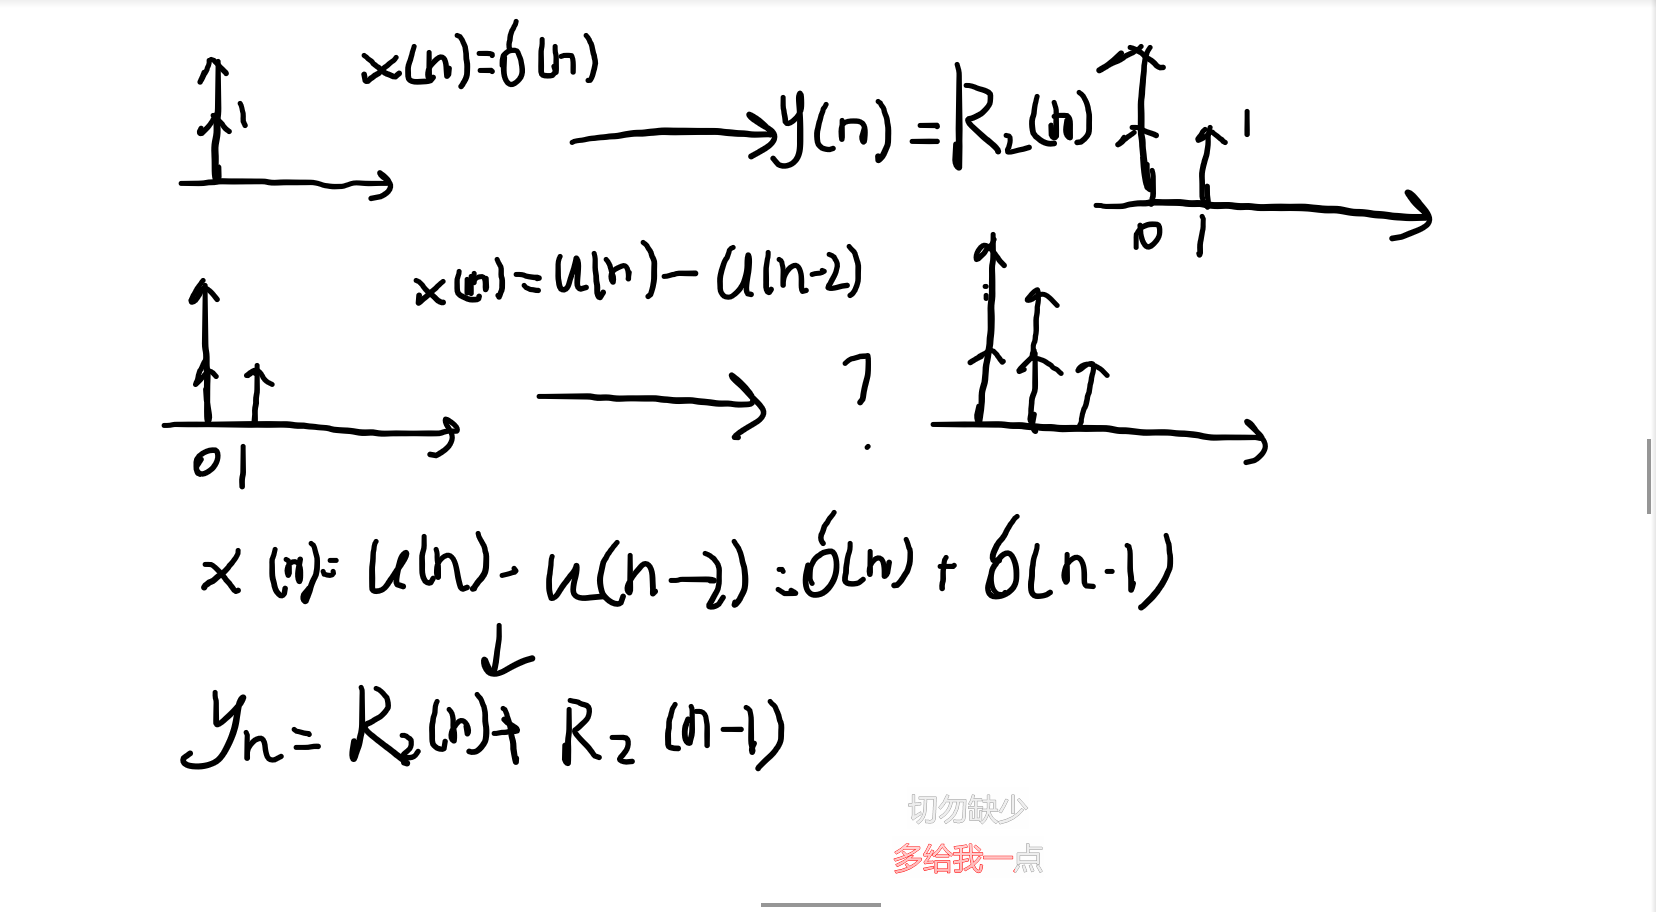 x(n)=δ(n)
1
y(n)=R₂(n)
1
0 1
x(n)=u(n)-u(n-2)
?
0 1
x(n)=u(n)-u(n-2)=δ(n)+δ(n-1)
yn=R₂(n)+R₂(n-1)
切勿缺少
多给我一点